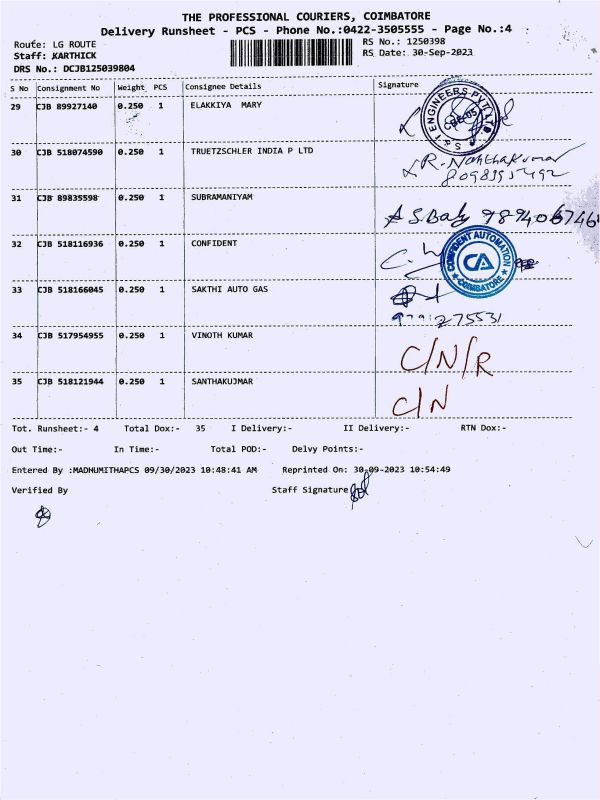 THE PROFESSIONAL COURIERS, COIMBATORE
Delivery Runsheet - PCS - Phone No.:0422-3505555 - Page No.:4
Route: LG ROUTE RS No.: 1250398
Staff: KARTHICK RS Date: 30-Sep-2023
DRS No.: DCJB125039804
S No Consignment No Weight PCS Consignee Details Signature
29 CJB 89927140 0.250 1 ELAKKIYA MARY
ENGINEERS PVT LTD
CBE-05
30 CJB 518074590 0.250 1 TRUETZSCHLER INDIA P LTD
31 CJB 89835598 0.250 1 SUBRAMANIYAM
32 CJB 518116936 0.250 1 CONFIDENT
CONFIDENT AUTOMATION
CA
COIMBATORE
33 CJB 518166045 0.250 1 SAKTHI AUTO GAS
34 CJB 517954955 0.250 1 VINOTH KUMAR C/N/R
35 CJB 518121944 0.250 1 SANTHAKUJMAR C/N
Tot. Runsheet:- 4 Total Dox:- 35 I Delivery:- II Delivery:- RTN Dox:-
Out Time:- In Time:- Total POD:- Delvy Points:-
Entered By :MADHUMITHAPCS 09/30/2023 10:48:41 AM Reprinted On: 30-09-2023 10:54:49
Verified By Staff Signature